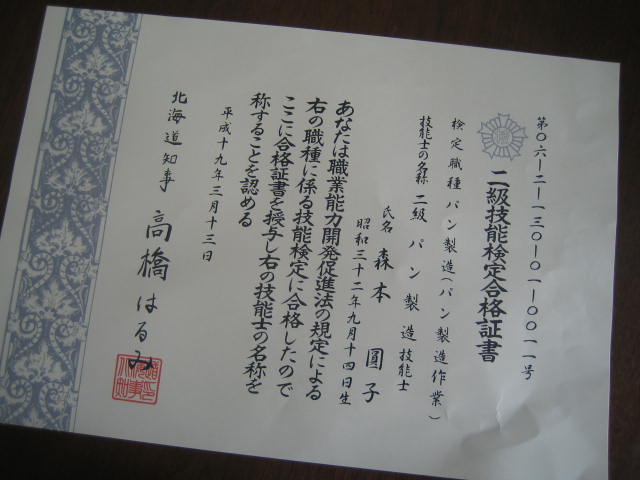 第〇六ー二ー一三〇ー〇一ー〇〇一一号
二級技能検定合格証書
検定職種 パン製造(パン製造作業)
技能士の名称 二級 パン製造技能士
氏名 森本 圓子
昭和三十二年九月十四日生
あなたは職業能力開発促進法の規定による
右の職種に係る技能検定に合格したので
ここに合格証書を授与し右の技能士の名称を
称することを認める
平成十九年三月十三日
北海道知事 高橋はるみ